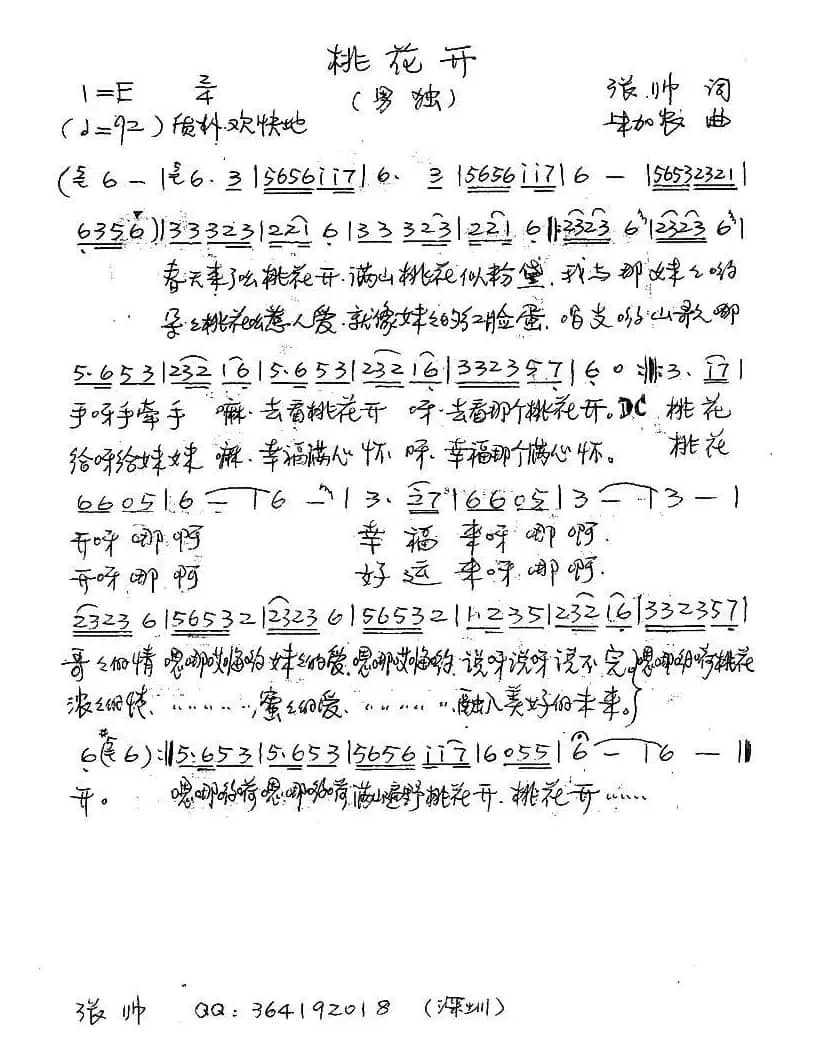 桃花开
1=E 2/4 (男独) 张帅 词
(♩=92) 质朴.欢快地 曲
6 — | 6. 3 | 5656 i i 7 | 6. 3 | 5656 i i 7 | 6 — | 56532321 |
6356) | 33323 | 221 6 | 33 323 | 221 6 ‖: 2323 6 | 2323 6 |
春天来了么桃花开.满山桃花似粉黛.我与那妹々哟
朵々桃花么惹人爱.就像妹々的红脸蛋.唱支哟山歌哪
5.653 | 232 16 | 5.653 | 232 16 | 3332357 | 6 0 :‖: 3. i7 |
手呀手牵手 嘛.去看桃花开 呀.去看那个桃花开。DC 桃花
给呀给妹妹 嘛.幸福满心怀 呀.幸福那个满心怀。 桃花
6605 | 6 — | 6 — | 3. 27 | 6605 | 3 — | 3 — |
开呀哪啊 幸福来呀哪啊.
开呀哪啊 好运来呀哪啊.
2323 6 | 56532 | 2323 6 | 56532 | 235 | 232 16 | 3332357 |
哥々的情 嗯哪哎 哟 妹々的爱.嗯哪哎 哟.说呀说呀说不完.嗯哪 桃花
浓々的情、〃〃〃〃〃,蜜々的爱、〃〃〃〃〃.融入美好的未来。}
6 ( 6) :‖ 5.653 | 5.653 | 5656 i i 7 | 6055 | 6 — | 6 — ‖
开。 嗯哪 荷嗯哪 荷满山遍野桃花开.桃花开……
张帅 QQ:364192018 (深圳)